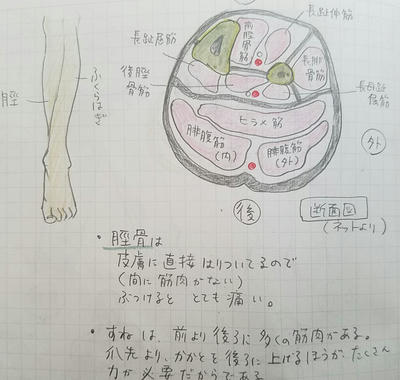 長趾伸筋
前脛骨筋
長趾屈筋
長腓骨筋
後脛
骨筋
長母趾
屈筋
脛
ふくらはぎ
ヒラメ筋
腓腹筋
(内)
腓腹筋
(外)
外
後
断面図
(ネットより)
・脛骨は
皮膚に直接はりついてるので
(間に筋肉がない)
ぶつけると とても痛い。
・すねは、前より後ろに多くの筋肉がある。
爪先より、かかとを後ろに上げるほうが、たくさん
力が必要だからである